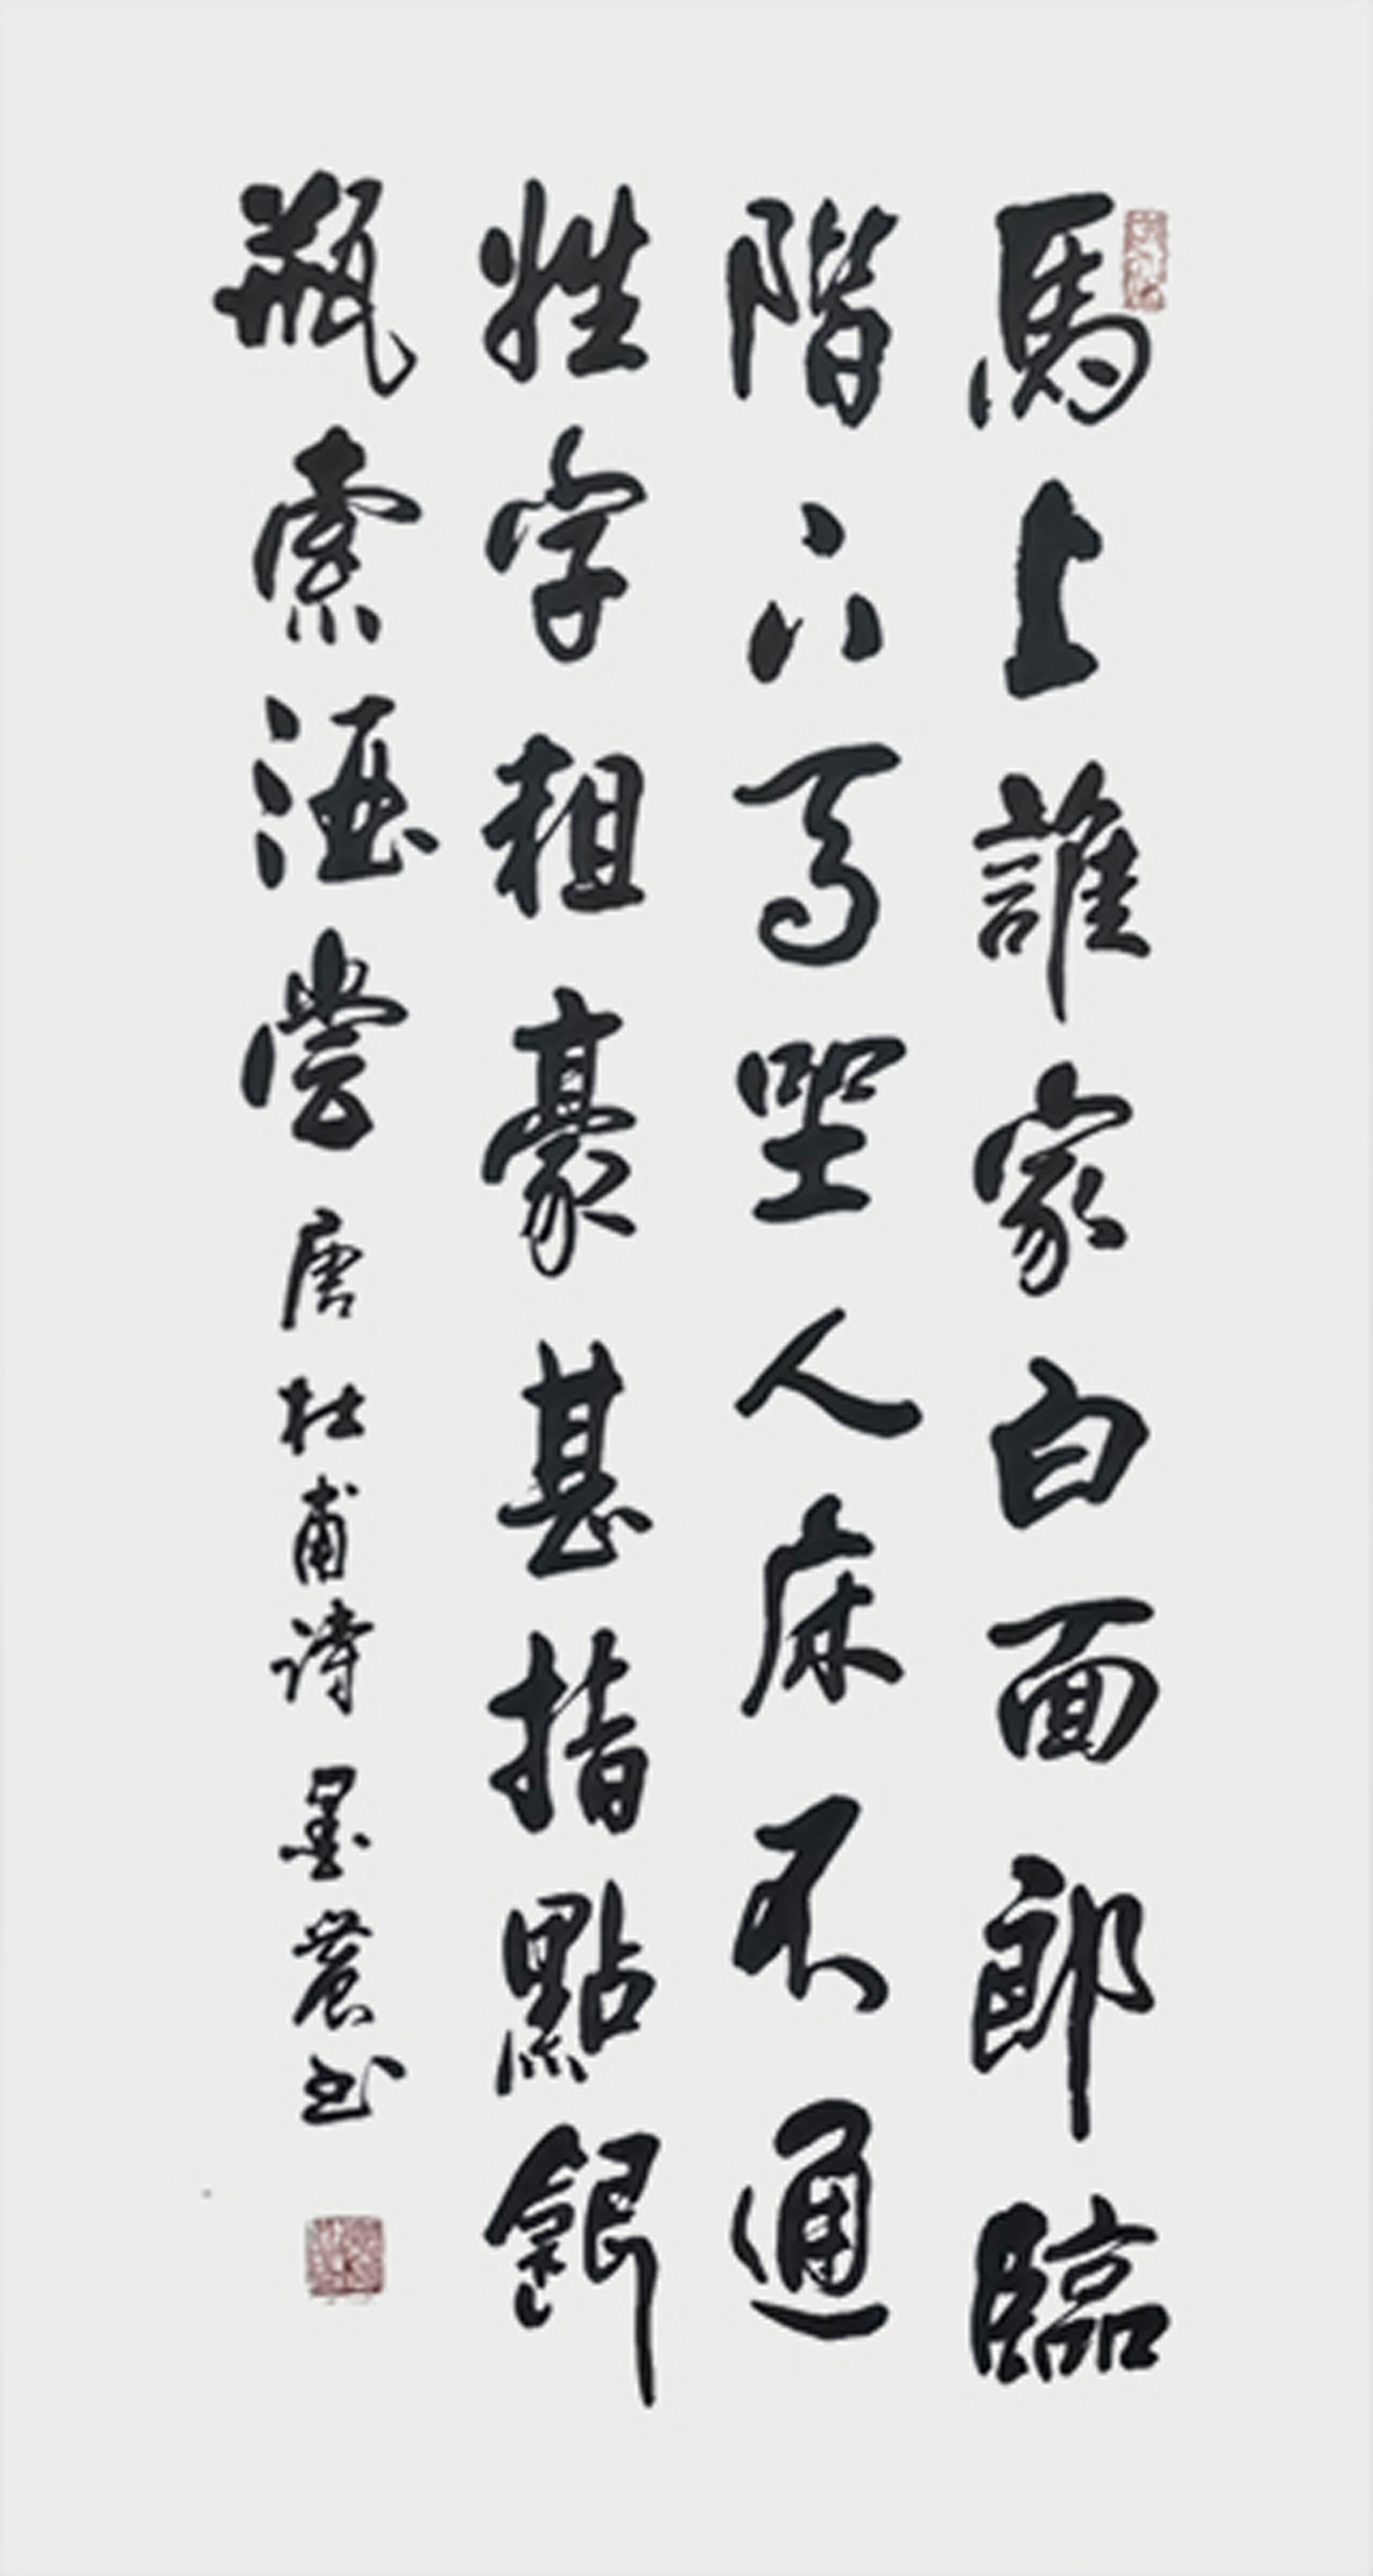 馬上誰家白面郎臨
階下馬坐人床不通
姓字粗豪甚指點銀
瓶索酒嘗唐杜甫詩墨農书